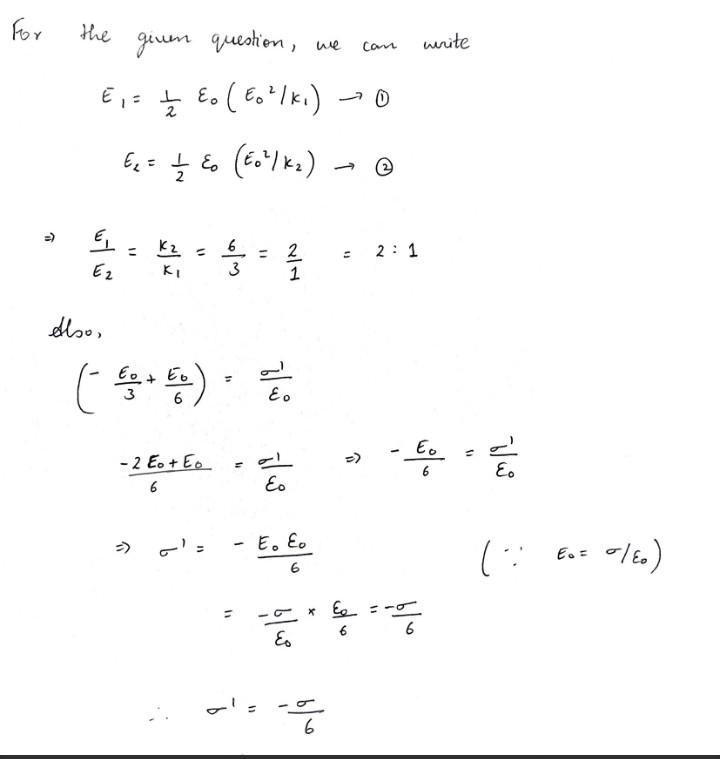 For the given question, we can write
E₁ = 1/2 ε₀ (E₀²/K₁) → ①
E₂ = 1/2 ε₀ (E₀²/K₂) → ②
⇒ E₁/E₂ = K₂/K₁ = 6/3 = 2/1 = 2 : 1
Also,
(- E₀/3 + E₀/6) = σ'/ε₀
(-2 E₀ + E₀)/6 = σ'/ε₀ ⇒ - E₀/6 = σ'/ε₀
⇒ σ' = - E₀ ε₀/6 (∵ E₀ = σ/ε₀)
= -σ/ε₀ × ε₀/6 = -σ/6
∴ σ' = -σ/6